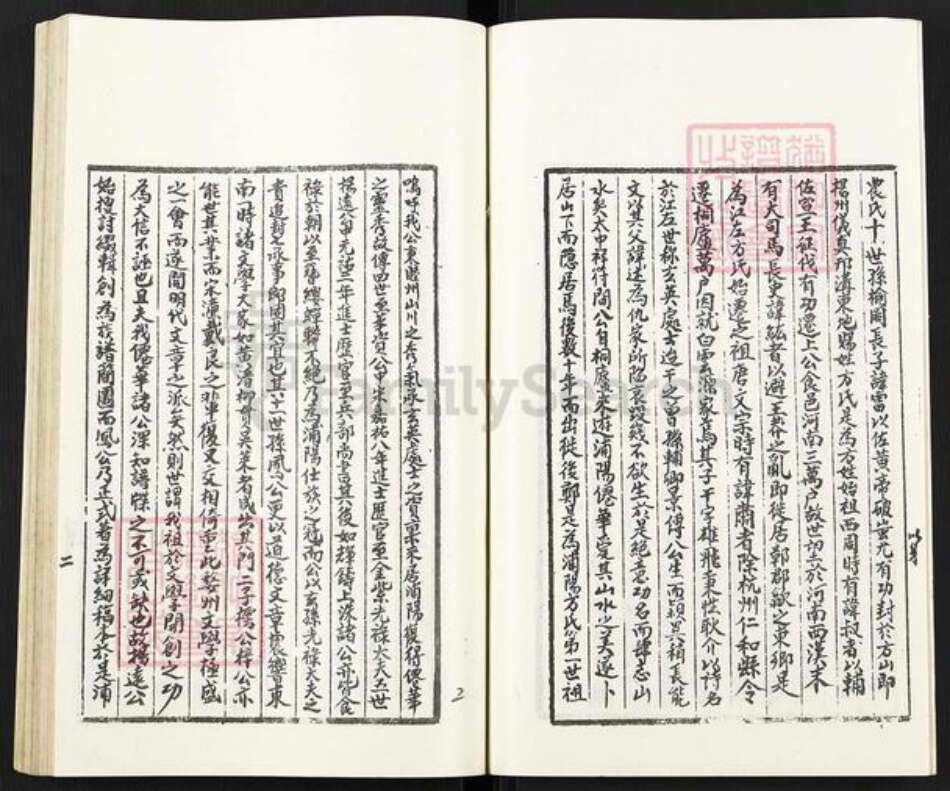 農氏十一世孫榆罔長子諱雷以佐黃帝破蚩尤有功封於方山即
揚州儀真邱溝東地賜姓方氏是為方姓始祖西周時有諱叔者以輔
佐宣王征伐有功遷上公食邑河南三萬戶故世望於河南西漢末
有大司馬長史諱紘者以避王莽之亂即徙居鄣郡歙之東鄉是
為江左方氏始遷之祖唐文宗時有諱肅者除杭州仁和縣令
遷桐廬萬戶因就白雲源家焉其子干字雄飛秉性耿介以詩名
於江左世稱玄英處士迨干之曾孫輔卿景傅公生而穎異稍長能
文以其父諱述為仇家所陷哀毀幾不欲生於是絕意功名而肆志山
水矣太中祥符間公自桐廬來遊浦陽僊華愛其山水之美遂卜
居山下而隱居焉後數十年而出徙後鄭是為浦陽方氏第一世祖
嗚呼我公秉睦州山川之秀氣承玄英處士之質稟來居浦陽復得僊華
之靈秀故傳四世至資公宋嘉祐八年進士歷官至金紫光祿大夫五世
揚遠公元祐三年進士歷官至兵部尚書其後如輝鑄上深諸公亦皆食
祿於朝以至簪纓蟬聯不絕乃為浦陽仕族之冠而公以玄孫光祿大夫之
貴追封承事郎固其宜也其十一世孫鳳公更以道德文章震響東
南一時諸文學大家如黃溍柳貫吳萊者咸出其門二子樗公梓公亦
能世其業而宋濂戴良之輩復又交相倚重此婺州文學極盛
之一會而遂開明代文章之派矣然則世謂我祖於文學開創之功
為大信不誣也且夫我僊華諸公深知譜牒之不可或缺也故揚遠公
始搜討綴輯創為族譜簡圖而鳳公乃正式著為詳細稿本於是浦
二
2